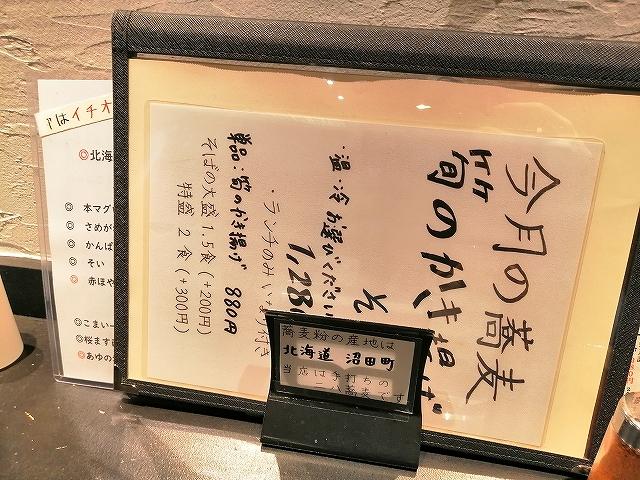 今月の蕎麦
筍のかき揚げ
そ
・温・冷お選びください
1,28
・ランチのみ
付き
単品:筍のかき揚げ 880円
そばの大盛 1.5食(+200円)
特盛 2食(+300円)
蕎麦粉の産地は
北海道 沼田町
当店は手打ちの
二八蕎麦です
はイチオ
◎北海
◎ 本マグ
◎ さめが
◎ かんぱ
◎ そい
◎ 赤ほや
◎こまい一
◎桜ます
◎あゆの